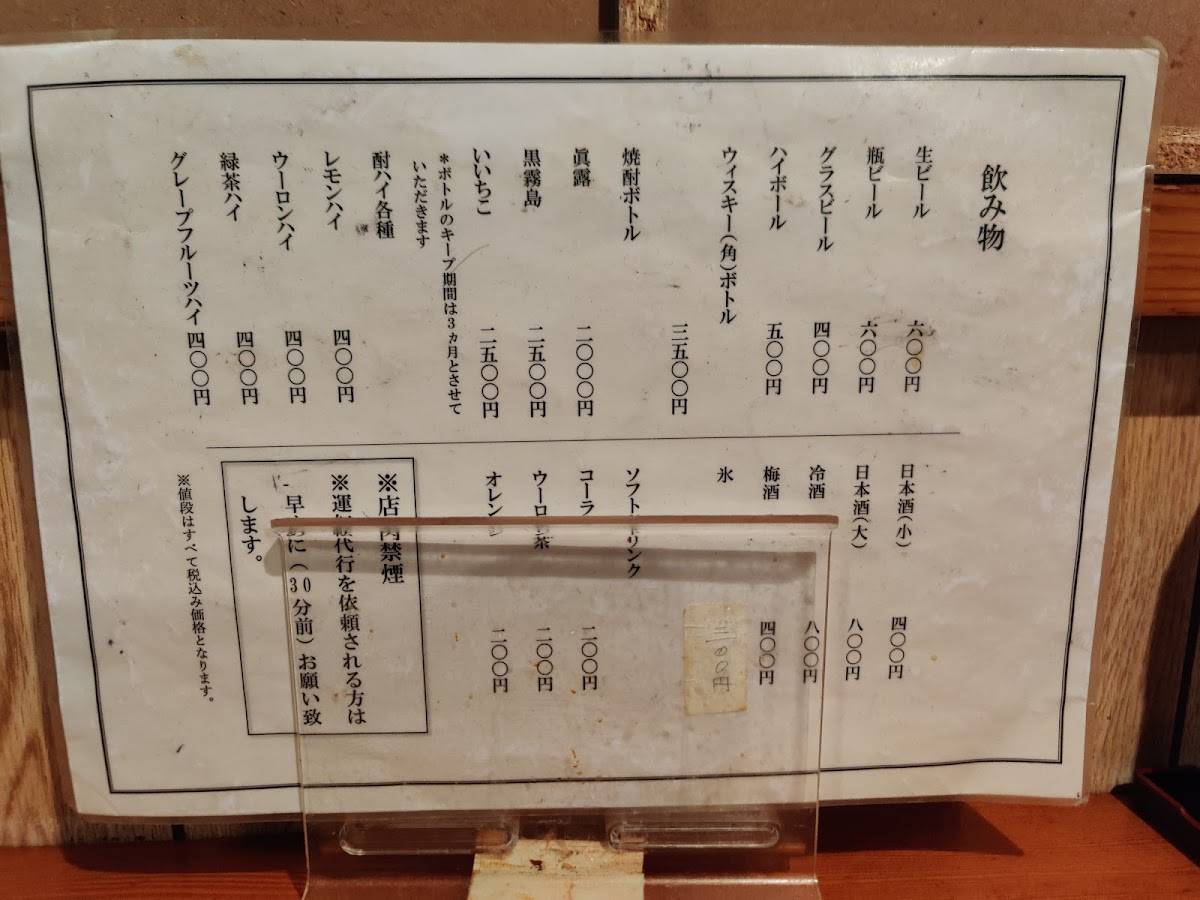 飲み物
生ビール 六〇〇円
瓶ビール 六〇〇円
グラスビール 四〇〇円
ハイボール 五〇〇円
ウィスキー(角)ボトル
三五〇〇円
焼酎ボトル
眞露 二〇〇〇円
黒霧島 二五〇〇円
いいちこ 二五〇〇円
*ボトルのキープ期間は3ヵ月とさせて
いただきます
酎ハイ各種
レモンハイ 四〇〇円
ウーロンハイ 四〇〇円
緑茶ハイ 四〇〇円
グレープフルーツハイ 四〇〇円
日本酒(小) 四〇〇円
日本酒(大) 八〇〇円
冷酒 八〇〇円
梅酒 四〇〇円
氷 〇〇円
ソフトドリンク
コーラ 二〇〇円
ウーロン茶 二〇〇円
オレンジ 二〇〇円
※店内禁煙
※運転代行を依頼される方は
早めに(30分前)お願い致
します。
※値段はすべて税込み価格となります。